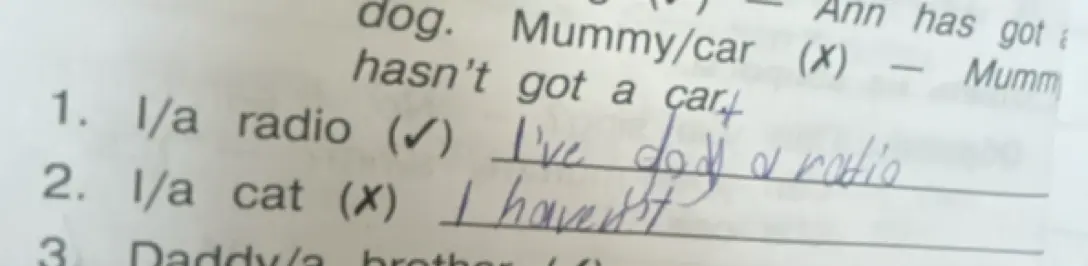 (✓) — Ann has got a
dog. Mummy/car (X) — Mumm
hasn't got a car.
1. I/a radio (✓) I've a radio
2. I/a cat (X) I haven't
3. Daddy/a brother (✓)